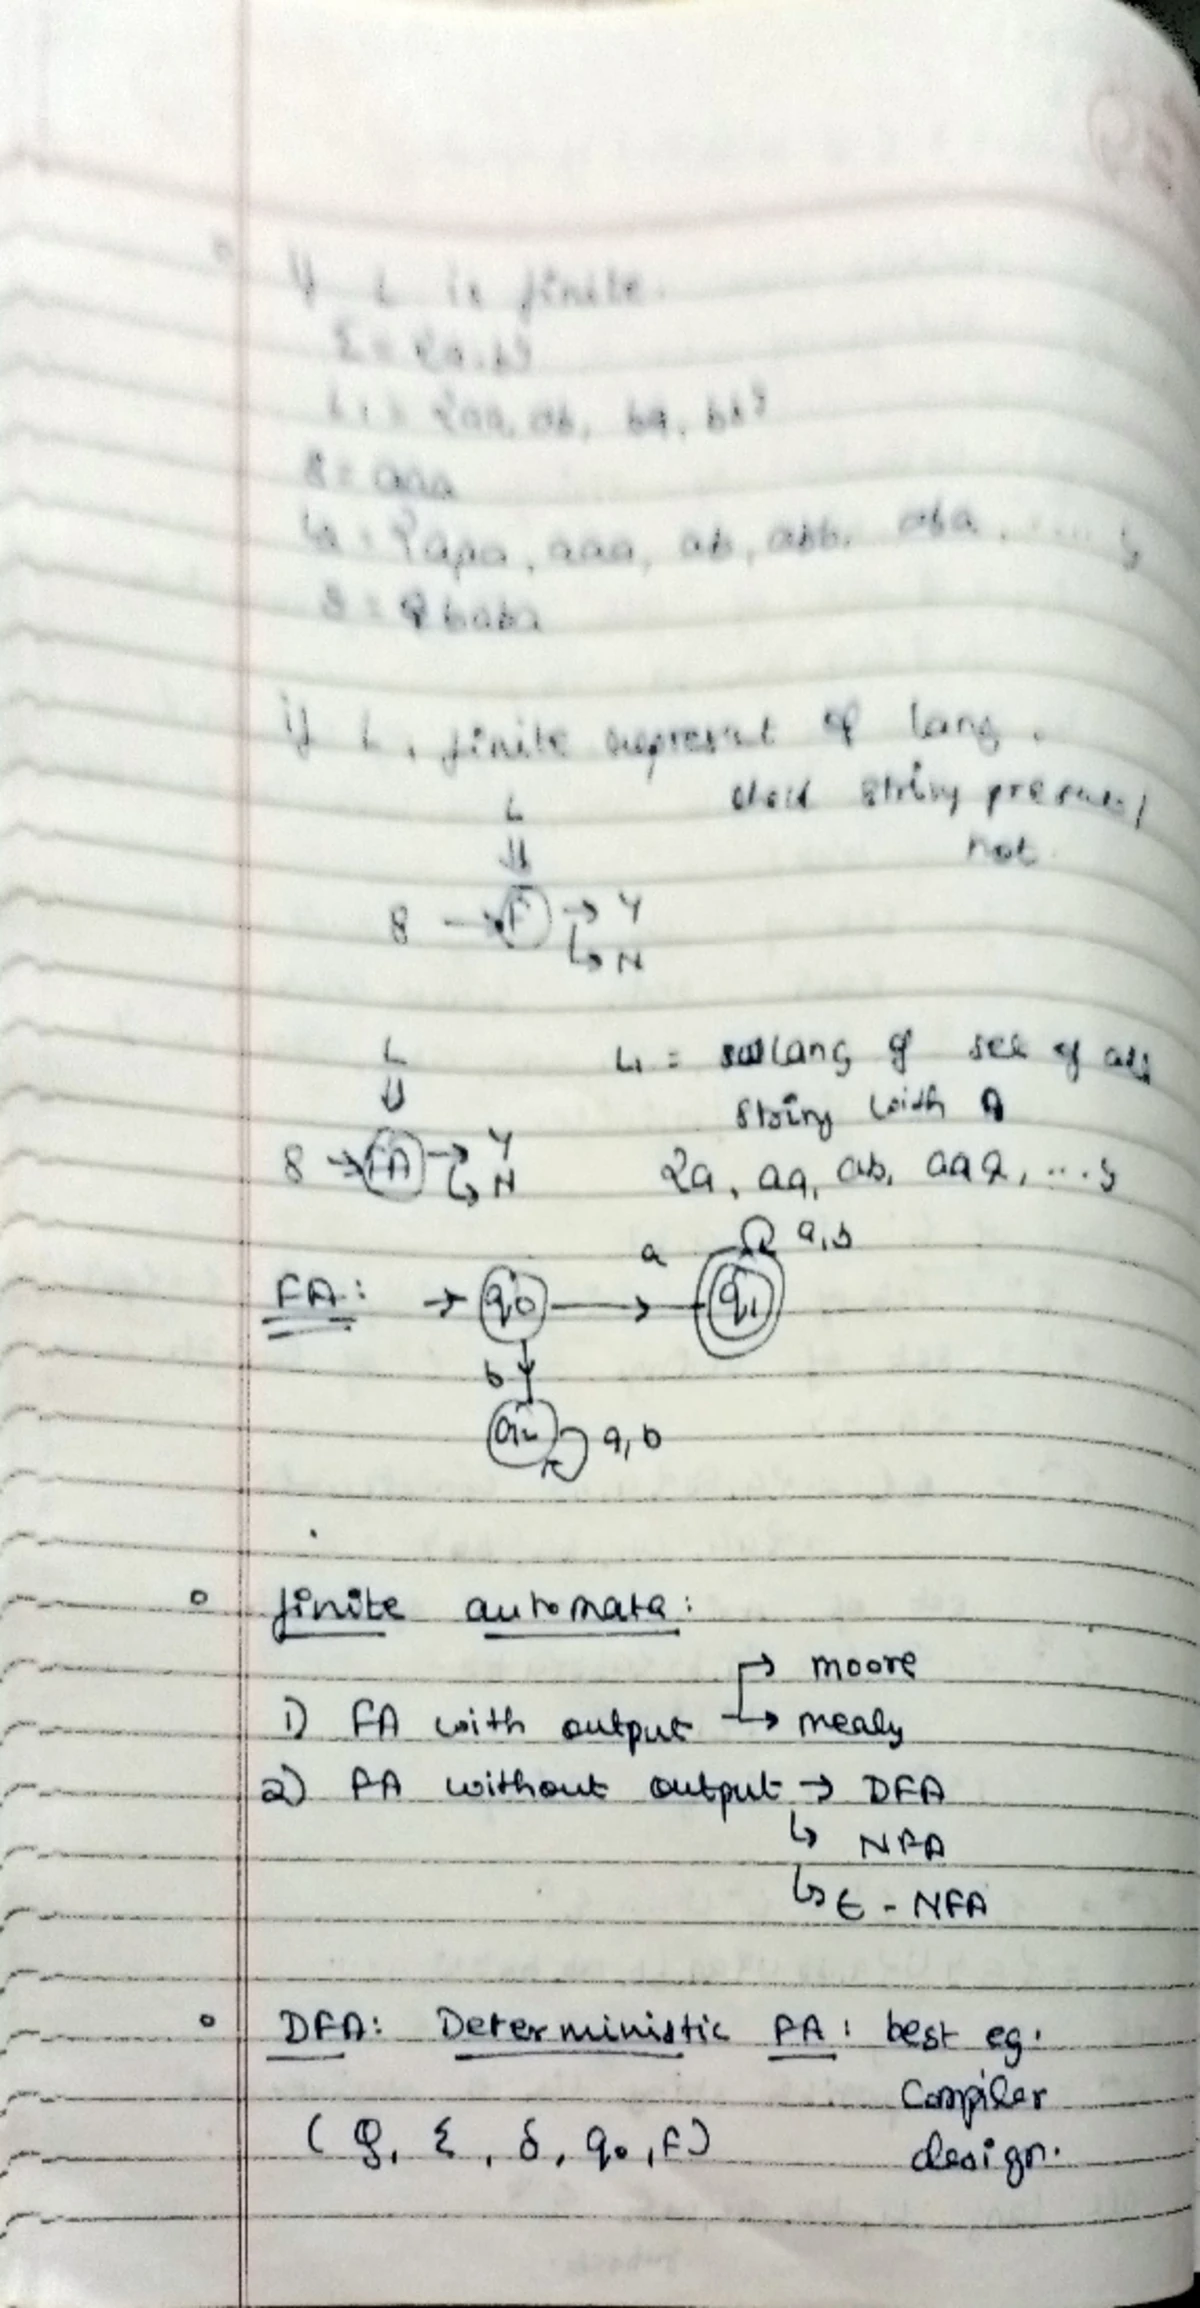 If L is finite.
Σ = {a, b}
L1 = {aa, ab, ba, bb}
S = aaa
aaa, ab, abb, aba, .... }
S = baba
if L, finite represent of lang.
string present/
not
L
⇓
S → F → Y
↳ N
L
⇓
S → FA → Y
↳ N
L1 = lang of set of all
string with A
{a, aa, ab, aaa, ... }
FA: → q0 a q1 a,b
b
q2 a, b
finite automata:
→ moore
1) FA with output ↳ mealy
2) FA without output → DFA
↳ NFA
↳ ε - NFA
DFA: Deterministic FA: best eg.
Compiler
design.
( Q, Σ, δ, q0, F)